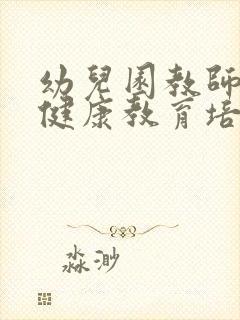 幼兒園教師
健康教育培
淼渺